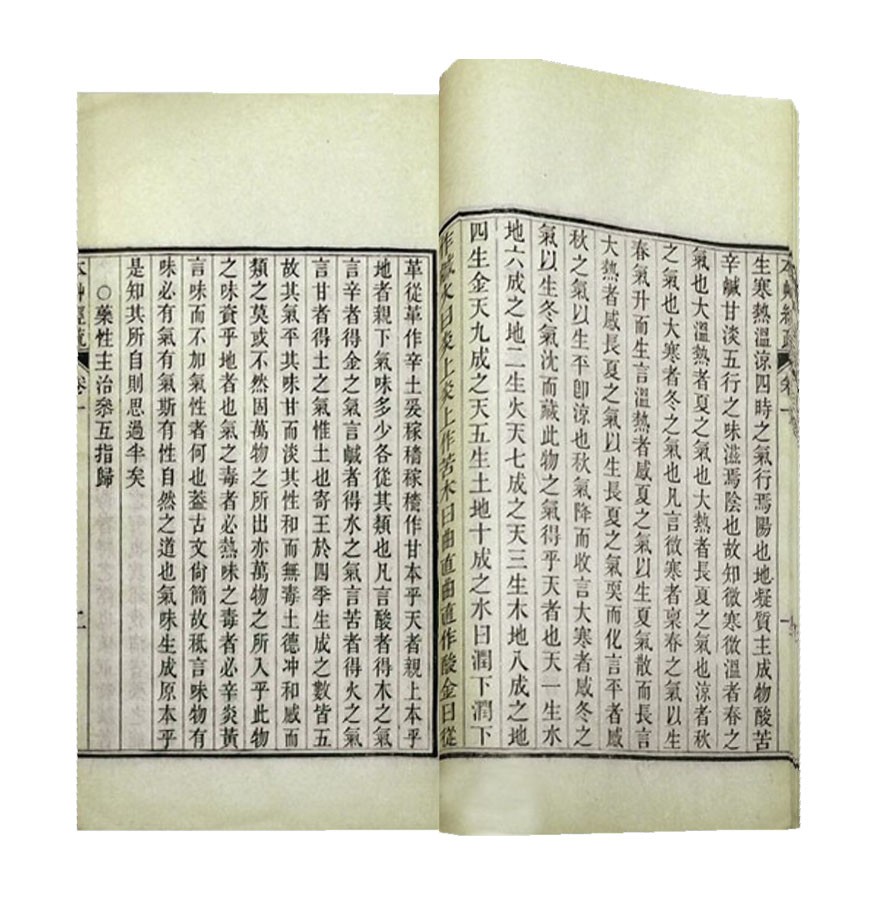 本艸經疏 卷一 一
生寒熱溫涼四時之氣行焉陽也地凝質主成物酸苦
辛鹹甘淡五行之味滋焉陰也故知微寒微溫者春之
氣也大溫熱者夏之氣也大熱者長夏之氣也涼者秋
之氣也大寒者冬之氣也凡言微寒者稟春之氣以生
春氣升而生言溫熱者感夏之氣以生夏氣散而長言
大熱者感長夏之氣以生長夏之氣耎而化言平者感
秋之氣以生平卽涼也秋氣降而收言大寒者感冬之
氣以生冬氣沈而藏此物之氣得乎天者也天一生水
地六成之地二生火天七成之天三生木地八成之地
四生金天九成之天五生土地十成之水曰潤下潤下
作鹹火曰炎上炎上作苦木曰曲直曲直作酸金曰從
革從革作辛土爰稼穡稼穡作甘本乎天者親上本乎
地者親下氣味多少各從其類也凡言酸者得木之氣
言辛者得金之氣言鹹者得水之氣言苦者得火之氣
言甘者得土之氣惟土也寄王於四季生成之數皆五
故其氣平其味甘而淡其性和而無毒土德冲和感而
類之莫或不然固萬物之所出亦萬物之所入乎此物
之味資乎地者也氣之毒者必熱味之毒者必辛炎黃
言味而不加氣性者何也葢古文尙簡故秪言味物有
味必有氣有氣斯有性自然之道也氣味生成原本乎
是知其所自則思過半矣
○藥性主治參互指歸
本艸經疏 卷一 二